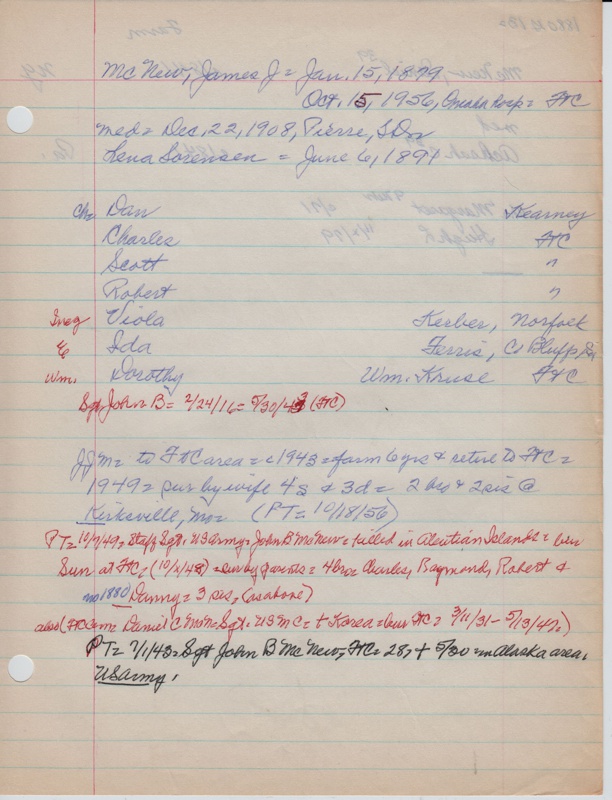 McNew, James J = Jan. 15, 1879
Oct. 15, 1956, Omaha hosp = FtC
med = Dec. 22, 1908, Pierre, SDn
Lena Sorensen = June 6, 1891
ch= Dan Kearney
Charles FtC
Scott "
Robert "
Viola Kerber, Norfolk
& Ida Ferris, Co Bluffs, Ia
Wm. Dorothy Wm. Kruse FtC
Sgt John B = 2/24/16 = 5/30/43 (FtC)
JJM = to FtC area = c1943 = farm 6 yrs & retire to FtC =
1949 = sur by wife 4s & 3d = 2 bro & 2 sis @
Kirksville, Mo = (PT = 10/18/56)
PT = 10/7/48 = Staff Sgt. US Army = John B McNew = killed in Aleutian Islands = bur
Sun at FtC, (10/3/48) = sur by parents = 4 bro = Charles, Raymond, Robert &
no 1880 Danny = 3 sis, (as above)
also (FtCem = Daniel C McN = Sgt. USMC = + Korea = bur FtC = 3/11/31 - 5/13/47=)
PT = 7/1/43 = Sgt John B McNew, FtC = 28, + 5/30 = in Alaska area,
US Army,